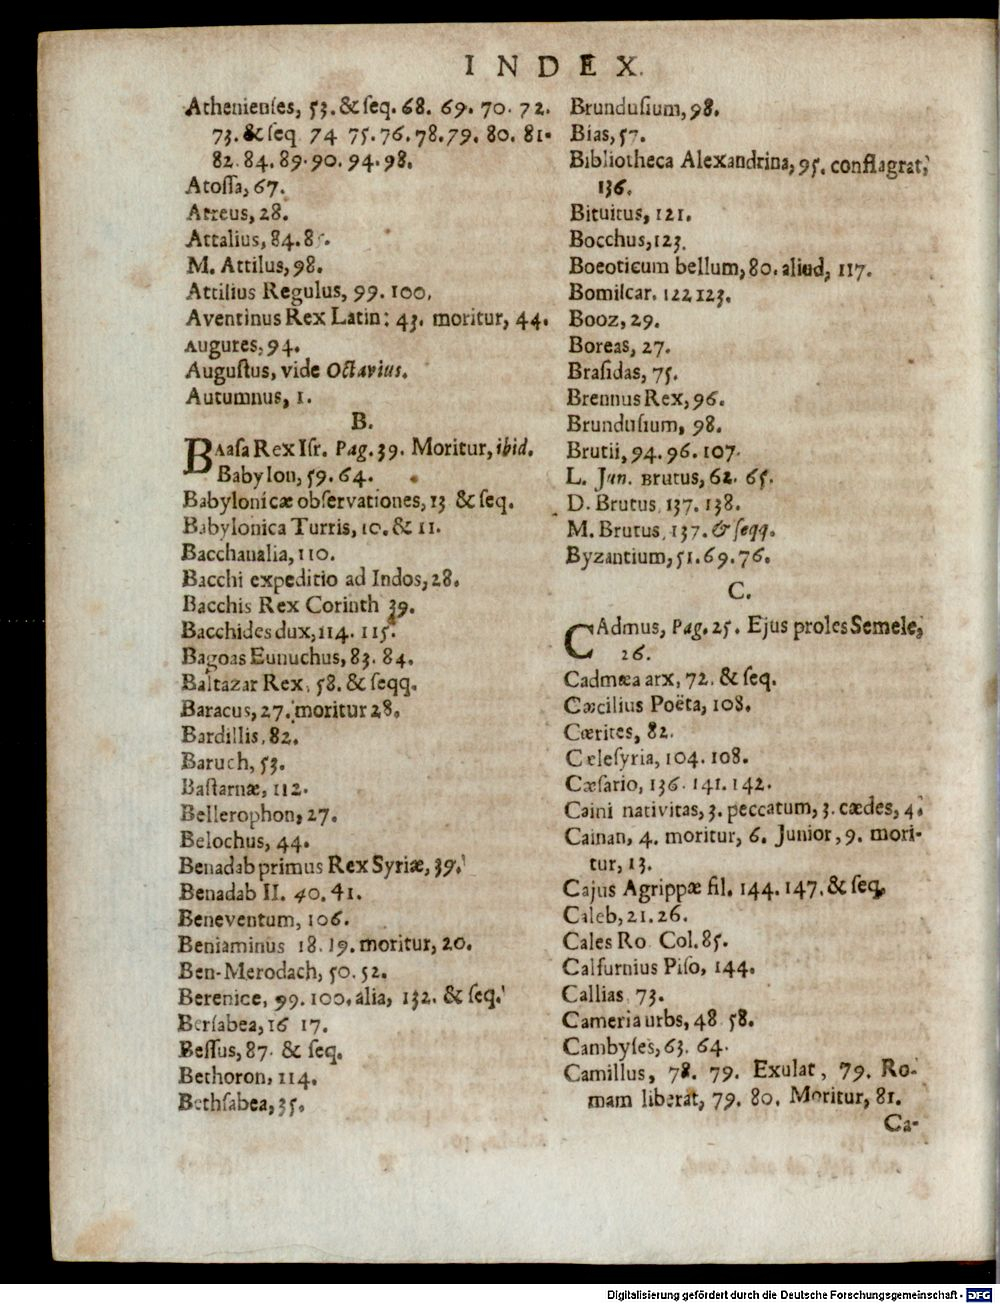 INDEX.
Athenienſes, 53. & ſeq. 68. 69. 70. 72.
73. & ſeq 74 75. 76. 78. 79. 80. 81.
82. 84. 89. 90. 94. 98.
Atoſſa, 67.
Atreus, 28.
Attalius, 84. 85.
M. Attilus, 98.
Attilius Regulus, 99. 100.
Aventinus Rex Latin: 43. moritur, 44.
Augures, 94.
Auguſtus, vide Octavius.
Autumnus, 1.
B.
BAaſa Rex Iſr. Pag. 39. Moritur, ibid.
Babylon, 59. 64.
Babylonicæ obſervationes, 13 & ſeq.
Babylonica Turris, 10. & 11.
Bacchanalia, 110.
Bacchi expeditio ad Indos, 28.
Bacchis Rex Corinth 39.
Bacchides dux, 114. 115.
Bagoas Eunuchus, 83. 84.
Baltazar Rex, 58. & ſeqq.
Baracus, 27. moritur 28.
Bardillis, 82.
Baruch, 53.
Baſtarnæ, 112.
Bellerophon, 27.
Belochus, 44.
Benadab primus Rex Syriæ, 39.
Benadab II. 40. 41.
Beneventum, 106.
Beniaminus 18. 19. moritur, 20.
Ben-Merodach, 50. 52.
Berenice, 99. 100. alia, 132. & ſeq.
Berſabea, 16 17.
Beſſus, 87. & ſeq.
Bethoron, 114.
Bethſabea, 35.
Brunduſium, 98.
Bias, 57.
Bibliotheca Alexandrina, 95. conflagrat,
136.
Bituitus, 121.
Bocchus, 123.
Boeoticum bellum, 80. aliud, 117.
Bomilcar. 122 123.
Booz, 29.
Boreas, 27.
Braſidas, 75.
Brennus Rex, 96.
Brunduſium, 98.
Brutii, 94. 96. 107.
L. Jun. Brutus, 62. 65.
D. Brutus, 137. 138.
M. Brutus, 137. & ſeqq.
Byzantium, 51. 69. 76.
C.
CAdmus, Pag. 25. Ejus proles Semele,
26.
Cadmæa arx, 72. & ſeq.
Cæcilius Poëta, 108.
Cærites, 82.
Cæleſyria, 104. 108.
Cæſario, 136. 141. 142.
Caini nativitas, 3. peccatum, 3. cædes, 4.
Cainan, 4. moritur, 6. Junior, 9. mori-
tur, 13.
Cajus Agrippæ fil. 144. 147. & ſeq.
Caleb, 21. 26.
Cales Ro. Col. 85.
Calfurnius Piſo, 144.
Callias, 73.
Cameria urbs, 48. 58.
Cambyſes, 63. 64.
Camillus, 78. 79. Exulat, 79. Ro-
mam liberat, 79. 80. Moritur, 81.
Ca-
Digitalisierung gefördert durch die Deutsche Forschungsgemeinschaft - DFG